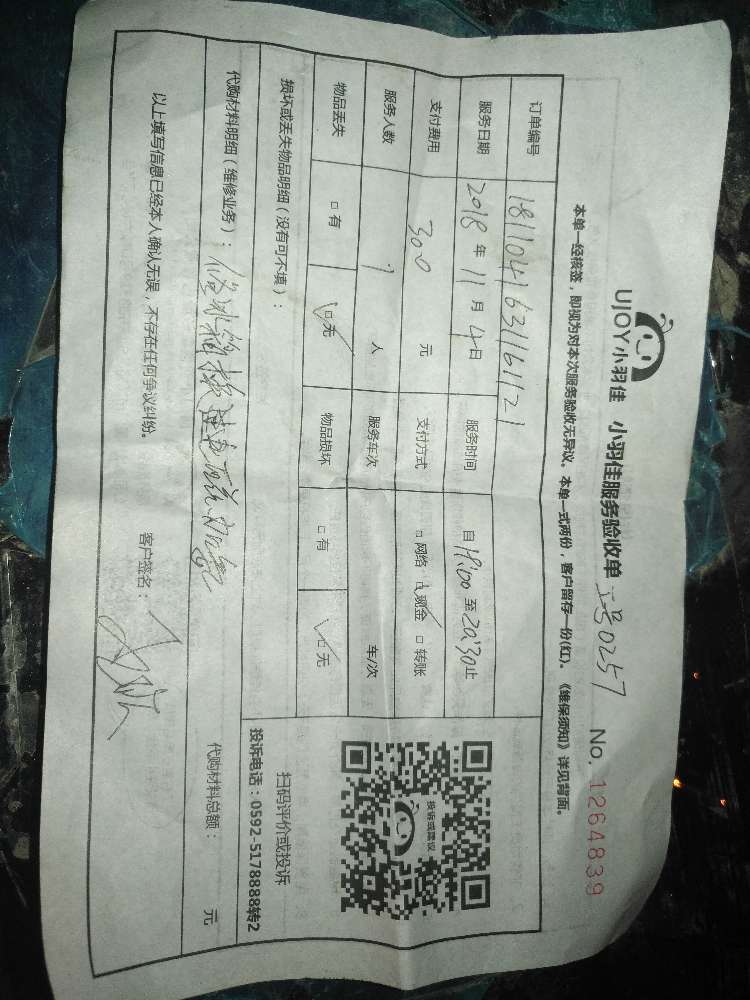 UJOY小羽佳 小羽佳服务验收单 工号0257 No. 1264839
本单一经核签，即视为对本次服务验收无异议。本单一式两份，客户留存一份(红)。《维保须知》详见背面。
订单编号 1811041631161121
服务日期 2018 年 11 月 4 日 服务时间 自 至 20:30 止
支付费用 300 元 支付方式 □ 网络 ☑ 现金 □ 转账
服务人数 1 人 服务车次 车/次
物品丢失 □ 有 ☑ 无 物品损坏 □ 有 ☑ 无
投诉或建议
扫码评价或投诉
投诉电话：0592-5178888转2
损坏或丢失物品明细（没有可不填）：
代购材料明细（维修业务）：修冰箱换 代购材料总额： 元
以上填写信息已经本人确认无误，不存在任何争议纠纷。 客户签名：